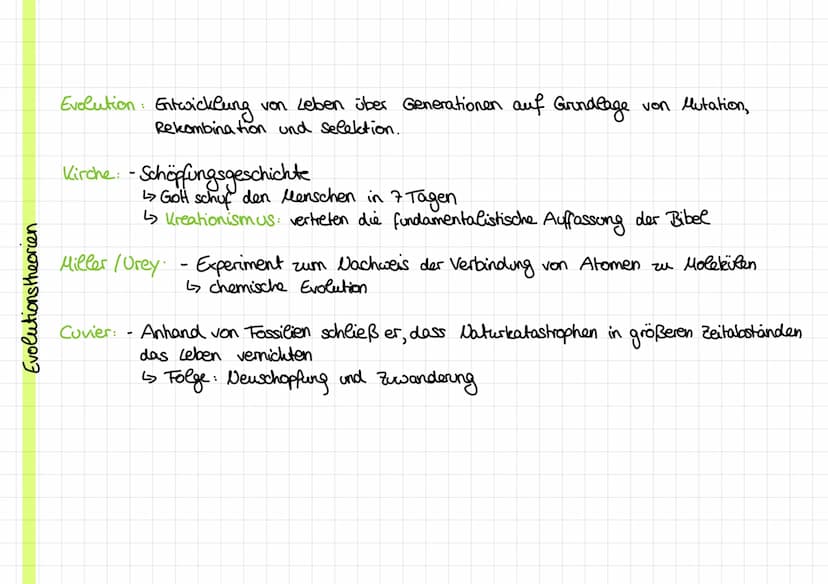 Evolutionstheorien
Evolution: Entwicklung von Leben über Generationen auf Grundlage von Mutation,
Rekombination und Selektion.
Kirche: - Schöpfungsgeschichte
↳ Gott schuf den Menschen in 7 Tagen
↳ Kreationismus: vertreten die fundamentalistische Auffassung der Bibel
Miller/Urey: - Experiment zum Nachweis der Verbindung von Atomen zu Molekülen
↳ chemische Evolution
Cuvier: - Anhand von Fossilien schließ er, dass Naturkatastrophen in größeren Zeitabständen
das Leben vernichten
↳ Folge: Neuschopfung und Zuwanderung